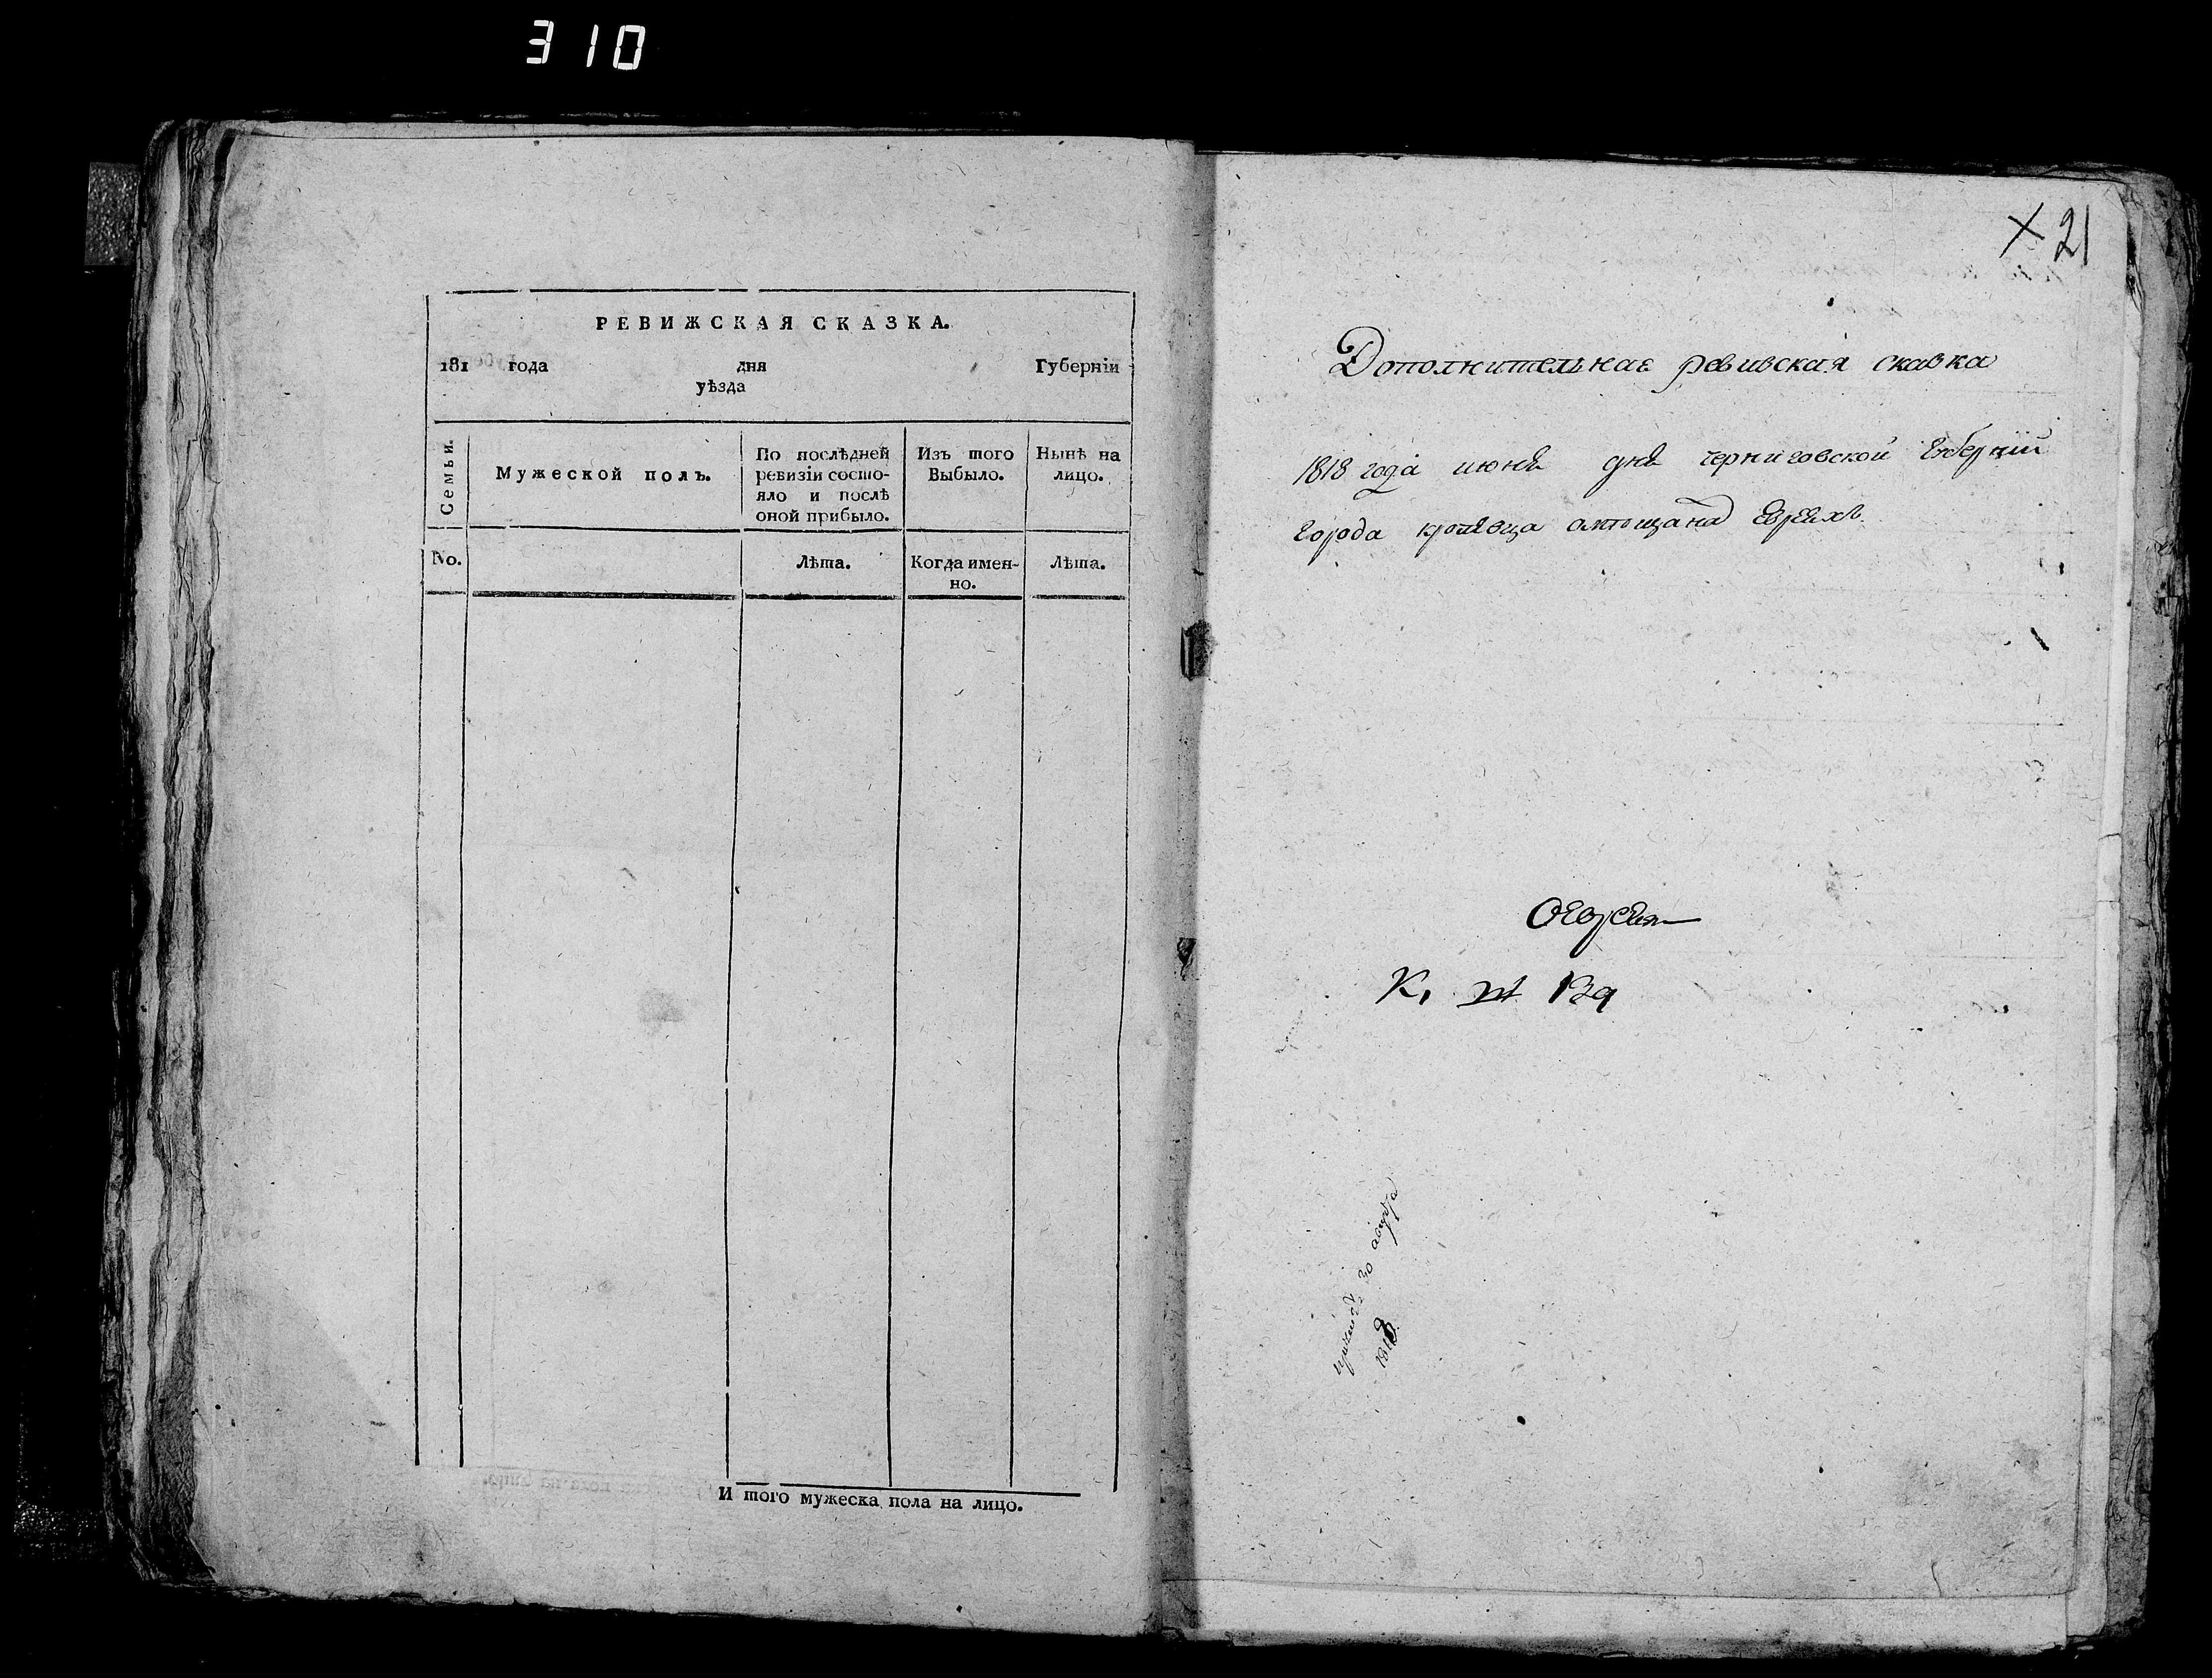 310
РЕВИЖСКАЯ СКАЗКА.
181 года дня Губерніи
уѣзда
Семьи. Мужеской полъ. По послѣдней ревизіи состо- Изъ того Нынѣ на
яло и послѣ оной прибыло. Выбыло. лицо.
No. Лѣта. Когда имен- Лѣта.
но.
И того мужеска пола на лицо.
× 21
Дополнительная ревизская сказка
1818 года июня дня черниговской губернии
города кролевца омещанах евреяхъ.
О евреяхъ
К. № 139
30
1818.